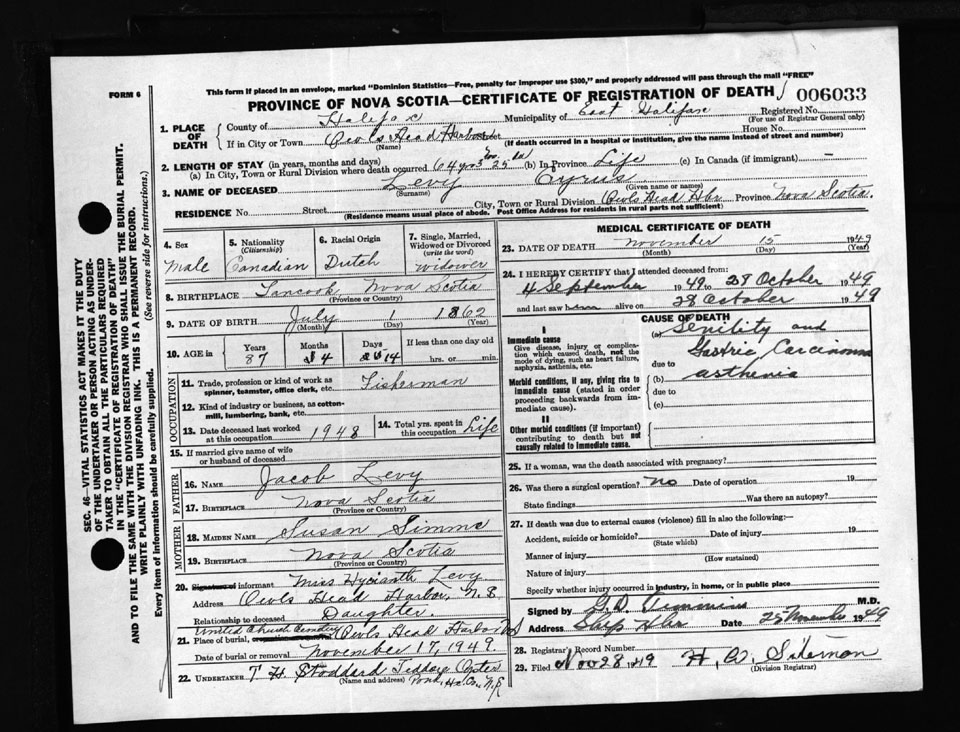 FORM 6
This form if placed in an envelope, marked "Dominion Statistics—Free, penalty for improper use $300," and properly addressed will pass through the mail "FREE"
PROVINCE OF NOVA SCOTIA—CERTIFICATE OF REGISTRATION OF DEATH 006033
1. PLACE OF DEATH
County of Halifax Municipality of East Halifax Registered No.
(For use of Registrar General only)
If in City or Town Owls Head Harbor Street House No.
(Name) (If death occurred in a hospital or institution, give the name instead of street and number)
2. LENGTH OF STAY (in years, months and days)
(a) In City, Town or Rural Division where death occurred 64 yrs 25 (b) In Province Life (c) In Canada (if immigrant) —
3. NAME OF DECEASED Levy Cyrus
(Surname) (Given name or names)
RESIDENCE No. Street City, Town or Rural Division Owls Head Hbr Province Nova Scotia.
(Residence means usual place of abode. Post Office Address for residents in rural parts not sufficient)
4. Sex
Male
5. Nationality
(Citizenship)
Canadian
6. Racial Origin
Dutch
7. Single, Married, Widowed or Divorced
(write the word)
Widower
8. BIRTHPLACE Tancook Nova Scotia
(Province or Country)
9. DATE OF BIRTH July 1 1862
(Month) (Day) (Year)
10. AGE in Years Months Days If less than one day old
87 4 14 hrs. or min.
OCCUPATION
11. Trade, profession or kind of work as spinner, teamster, office clerk, etc. Fisherman
12. Kind of industry or business, as cotton-mill, lumbering, bank, etc.
13. Date deceased last worked at this occupation 1948
14. Total yrs. spent in this occupation Life
15. If married give name of wife or husband of deceased
FATHER
16. Name Jacob Levy
17. Birthplace Nova Scotia
(Province or Country)
MOTHER
18. Maiden Name Susan Simms
19. Birthplace Nova Scotia
(Province or Country)
20. Signature of informant Miss Hycianth Levy
Address Owls Head Harbor, N.S.
Relationship to deceased Daughter
United Church Cemetery
21. Place of burial, Owls Head Harbor NS
Date of burial or removal November 17, 1949.
22. UNDERTAKER T H Stoddard Jeddore Oyster
(Name and address) Pond, Hx. Co., N.S.
MEDICAL CERTIFICATE OF DEATH
23. DATE OF DEATH November 15 1949
(Month) (Day) (Year)
24. I HEREBY CERTIFY that I attended deceased from:
4 September 1949 to 28 October 1949
and last saw him alive on 28 October 1949
CAUSE OF DEATH
I
Immediate cause
Give disease, injury or complication which caused death, not the mode of dying, such as heart failure, asphyxia, asthenia, etc.
(a) Senility and
Gastric Carcinoma
due to
Morbid conditions, if any, giving rise to immediate cause (stated in order proceeding backwards from immediate cause).
(b) asthenia
due to
(c)
II
Other morbid conditions (if important) contributing to death but not causally related to immediate cause.
25. If a woman, was the death associated with pregnancy?
26. Was there a surgical operation? no Date of operation 19
State findings Was there an autopsy?
27. If death was due to external causes (violence) fill in also the following:—
Accident, suicide or homicide? Date of injury 19
(State which)
Manner of injury
(How sustained)
Nature of injury
Specify whether injury occurred in industry, in home, or in public place
Signed by M.D.
Address Ship Hbr Date 1949
28. Registrar's Record Number
29. Filed Nov 28 49 H. W. Siteman
(Division Registrar)
SEC. 46—VITAL STATISTICS ACT MAKES IT THE DUTY
OF THE UNDERTAKER OR PERSON ACTING AS UNDER-
TAKER TO OBTAIN ALL THE PARTICULARS REQUIRED
IN THE "CERTIFICATE OF REGISTRATION OF DEATH"
AND TO FILE THE SAME WITH THE DIVISION REGISTRAR WHO SHALL ISSUE THE BURIAL PERMIT.
WRITE PLAINLY WITH UNFADING INK. THIS IS A PERMANENT RECORD.
Every item of information should be carefully supplied. (See reverse side for instructions.)